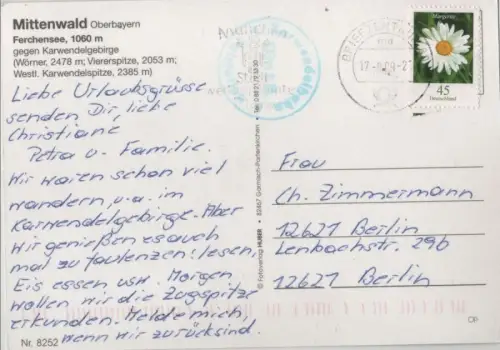 Mittenwald Oberbayern
Ferchensee, 1060 m
gegen Karwendelgebirge
(Wörner, 2478 m; Viererspitze, 2053 m;
Westl. Karwendelspitze, 2385 m)
Liebe Urlaubsgrüsse
senden Dir, liebe
Christiane
Petra u. Familie.
Wir waren schon viel
wandern, u.a. im
Karwendelgebirge. Aber
wir genießen es auch
mal zu faulenzen: lesen,
Eis essen usw. Morgen
wollen wir die Zugspitze
erkunden. Melde mich,
wenn wir zurück sind.
Nr. 8252
© Fotoverlag HUBER
82467 Garmisch-Partenkirchen
München
Margerite
45
Deutschland
Frau
Ch. Zimmermann
12621 Berlin
Lenbachstr. 29b
12621 Berlin